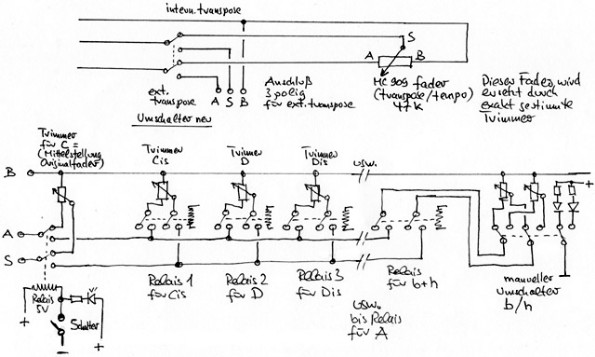 intern.transpose
S
A
B
ext.
transpose
A S B
Anschluß
3 polig
für ext.transpose
MC 909 fader
(transpose/tempo)
47K
Dieser Fader wird
ersetzt durch
exakt gestimmte
Trimmer
Umschalter neu
Trimmer
für C =
(Mittelstellung
Originalfader)
Trimmer
Cis
Trimmer
D
Trimmer
Dis
usw.
B
+
A
S
Relais
5V
Schalter
+
+
Relais 1
für Cis
Relais 2
für D
Relais 3
für Dis
Relais
für b+h
usw.
bis Relais
für A
manueller
Umschalter
b/h